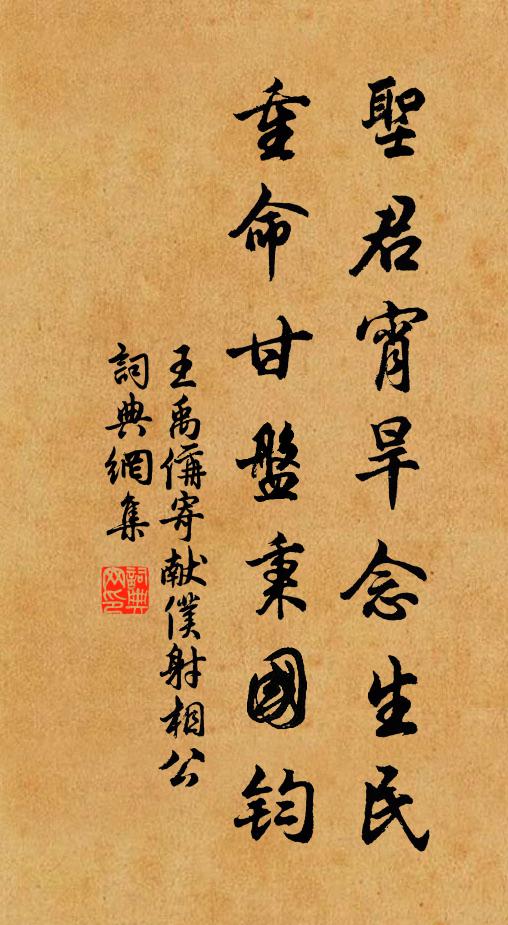 聖君宵旱念生民
重命甘盤秉國鈞
王禹偁寄献僕射相公
詞典網集
詞典网印